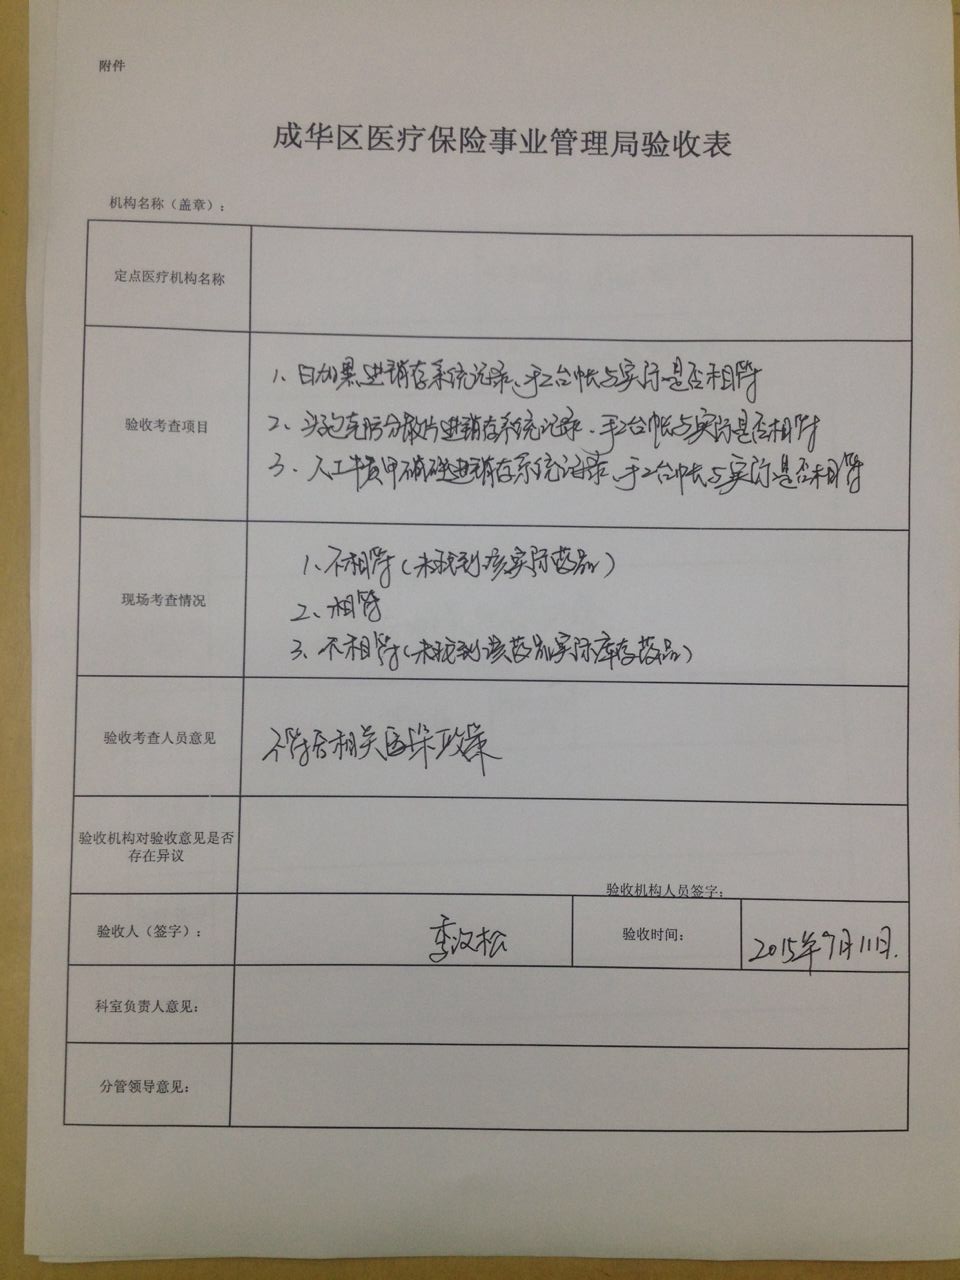 附件
成华区医疗保险事业管理局验收表
机构名称（盖章）：
定点医疗机构名称
验收考查项目
1、日加黑进销存系统记录、手工台帐与实际是否相符
2、头孢克肟分散片进销存系统记录、手工台帐与实际是否相符
3、人工牛黄甲硝唑进销存系统记录、手工台帐与实际是否相符
现场考查情况
1、不相符（未找到该实际药品）
2、相符
3、不相符（未找到该药品实际库存药品）
验收考查人员意见
不符合相关医保政策
验收机构对验收意见是否
存在异议
验收机构人员签字：
验收人（签字）：
季汉松
验收时间：
2015年9月11日.
科室负责人意见：
分管领导意见：